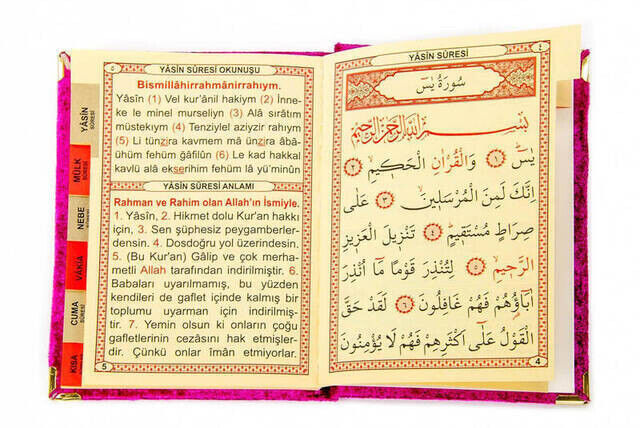 YÂSİN SÛRESİ
سُورَةُ يٰسٓ
بِسْمِ اللّٰهِ الرَّحْمٰنِ الرَّحٖيمِ
يٰسٓ ﴿١﴾ وَالْقُرْاٰنِ الْحَكٖيمِ ﴿٢﴾
اِنَّكَ لَمِنَ الْمُرْسَلٖينَ ﴿٣﴾ عَلٰى
صِرَاطٍ مُسْتَقٖيمٍ ﴿٤﴾ تَنْزٖيلَ الْعَزٖيزِ
الرَّحٖيمِ ﴿٥﴾ لِتُنْذِرَ قَوْمًا مَٓا اُنْذِرَ
اٰبَٓاؤُ۬هُمْ فَهُمْ غَافِلُونَ ﴿٦﴾ لَقَدْ حَقَّ
الْقَوْلُ عَلٰٓى اَكْثَرِهِمْ فَهُمْ لَا يُؤْمِنُونَ
4
YÂSİN SÛRESİ OKUNUŞU
Bismillâhirrahmânirrahıym.
Yâsîn (1) Vel kur'ânil hakiym (2) İnne-
ke le minel murseliyn (3) Alâ sırâtım
müstekıym (4) Tenziylel aziyzir rahıym
(5) Li tünzira kavmem mâ ünzira âbâ-
ühüm fehüm ğâfilûn (6) Le kad hakkal
kavlü alâ ekserihim fehüm lâ yü'minûn
YÂSİN SÛRESİ ANLAMI
Rahman ve Rahim olan Allah'ın İsmiyle.
1. Yâsîn, 2. Hikmet dolu Kur'an hakkı
için, 3. Sen şüphesiz peygamberler-
densin. 4. Dosdoğru yol üzerindesin.
5. (Bu Kur'an) Gâlip ve çok merha-
metli Allah tarafından indirilmiştir. 6.
Babaları uyarılmamış, bu yüzden
kendileri de gaflet içinde kalmış bir
toplumu uyarman için indirilmiş-
tir. 7. Yemin olsun ki onların çoğu
gafletlerinin cezasını hak etmişler-
dir. Çünkü onlar îmân etmiyorlar.
5
YÂSİN
SÛRESİ
MÜLK
SÛRESİ
NEBE
SÛRESİ
VAKIA
CUMA
SÛRESİ
KISA